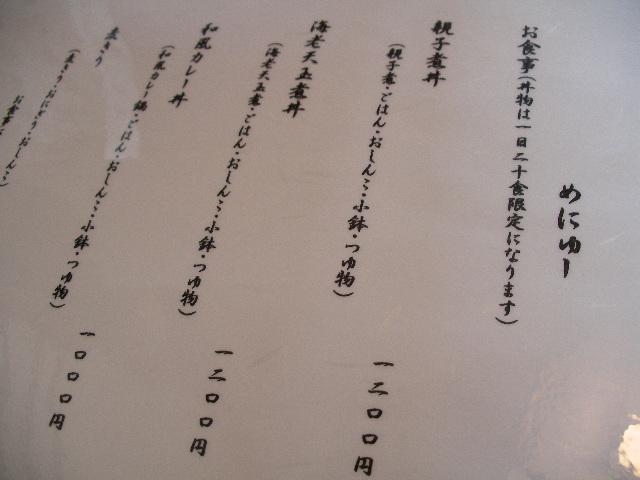 めにゅー
お食事(丼物は一日二十食限定になります)
親子煮丼
(親子煮・ごはん・おしんこ・小鉢・つゆ物)
一二〇〇円
海老天玉煮丼
(海老天玉煮・ごはん・おしんこ・小鉢・つゆ物)
一二〇〇円
和風カレー丼
(和風カレー鍋・ごはん・おしんこ・小鉢・つゆ物)
一〇〇〇円